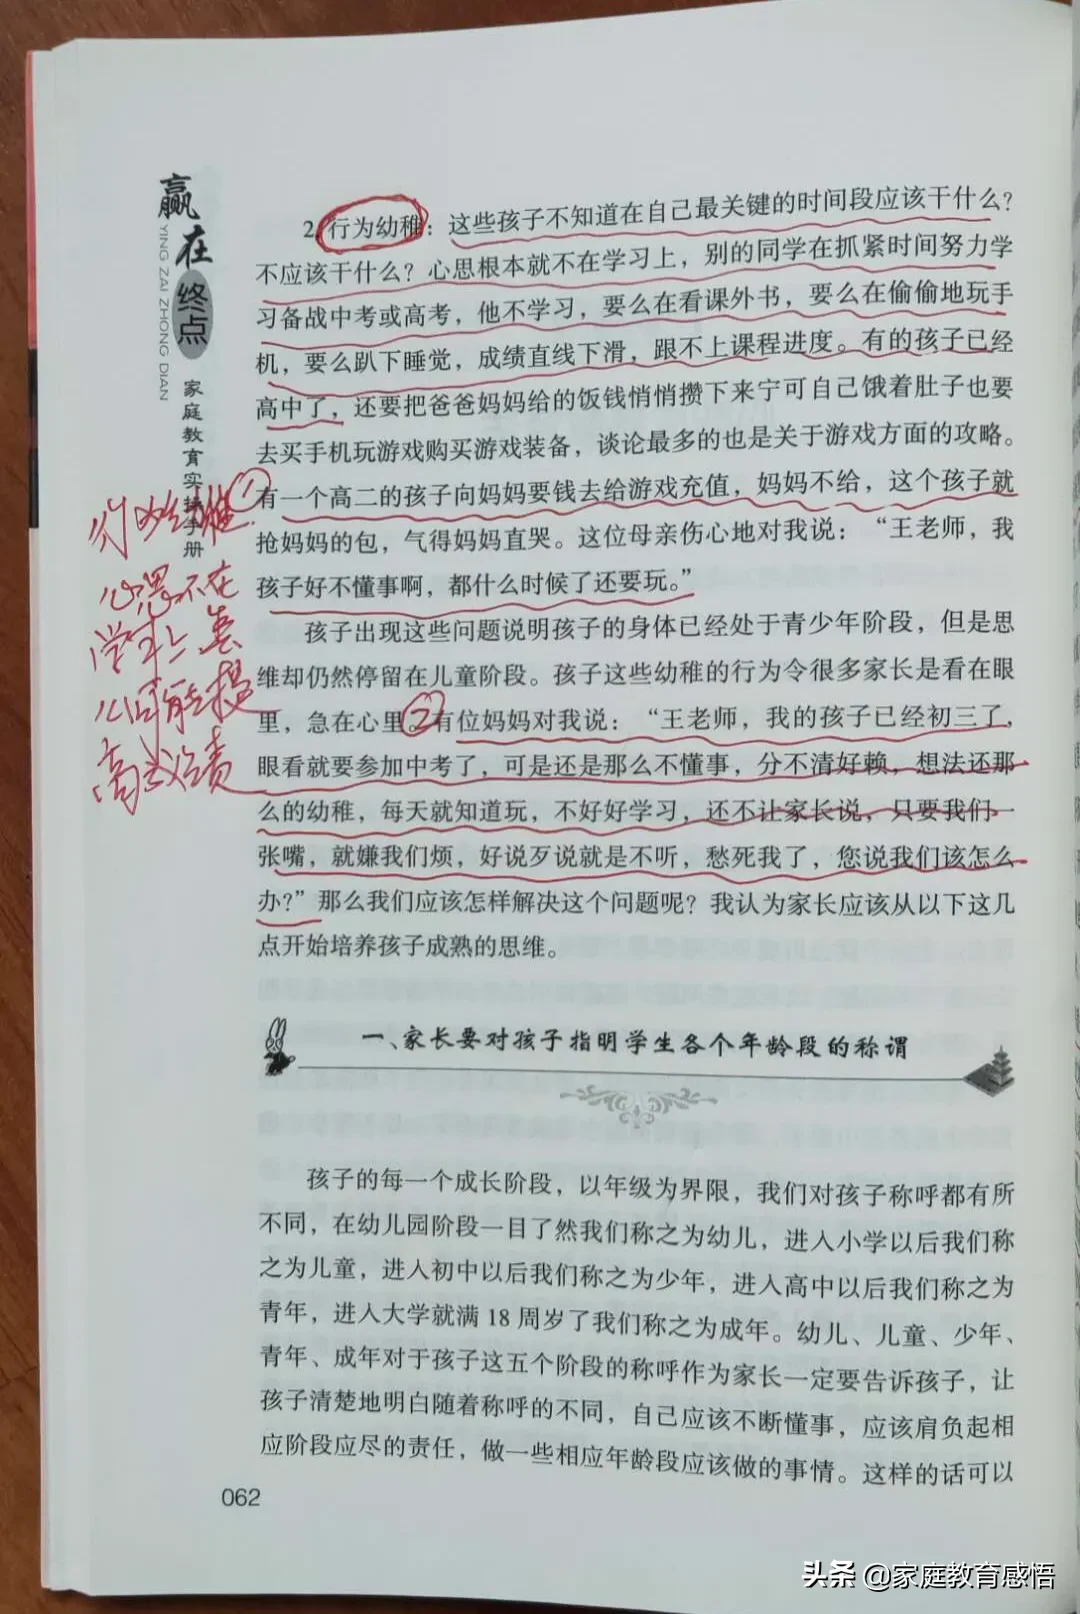 赢在终点
YING ZAI ZHONG DIAN
家庭教育实操手册
2. 行为幼稚：这些孩子不知道在自己最关键的时间段应该干什么？
不应该干什么？心思根本就不在学习上，别的同学在抓紧时间努力学
习备战中考或高考，他不学习，要么在看课外书，要么在偷偷地玩手
机，要么趴下睡觉，成绩直线下滑，跟不上课程进度。有的孩子已经
高中了，还要把爸爸妈妈给的饭钱悄悄攒下来宁可自己饿着肚子也要
去买手机玩游戏购买游戏装备，谈论最多的也是关于游戏方面的攻略。
有一个高二的孩子向妈妈要钱去给游戏充值，妈妈不给，这个孩子就
抢妈妈的包，气得妈妈直哭。这位母亲伤心地对我说：“王老师，我
孩子好不懂事啊，都什么时候了还要玩。”
孩子出现这些问题说明孩子的身体已经处于青少年阶段，但是思
维却仍然停留在儿童阶段。孩子这些幼稚的行为令很多家长是看在眼
里，急在心里。有位妈妈对我说：“王老师，我的孩子已经初三了，
眼看就要参加中考了，可是还是那么不懂事，分不清好赖，想法还那
么的幼稚，每天就知道玩，不好好学习，还不让家长说，只要我们一
张嘴，就嫌我们烦，好说歹说就是不听，愁死我了，您说我们该怎么
办？”那么我们应该怎样解决这个问题呢？我认为家长应该从以下这几
点开始培养孩子成熟的思维。
①
②
行为幼稚
心思不在
学习上怎
么可能提
高成绩
一、家长要对孩子指明学生各个年龄段的称谓
孩子的每一个成长阶段，以年级为界限，我们对孩子称呼都有所
不同，在幼儿园阶段一目了然我们称之为幼儿，进入小学以后我们称
之为儿童，进入初中以后我们称之为少年，进入高中以后我们称之为
青年，进入大学就满 18 周岁了我们称之为成年。幼儿、儿童、少年、
青年、成年对于孩子这五个阶段的称呼作为家长一定要告诉孩子，让
孩子清楚地明白随着称呼的不同，自己应该不断懂事，应该肩负起相
应阶段应尽的责任，做一些相应年龄段应该做的事情。这样的话可以
062
头条 @家庭教育感悟